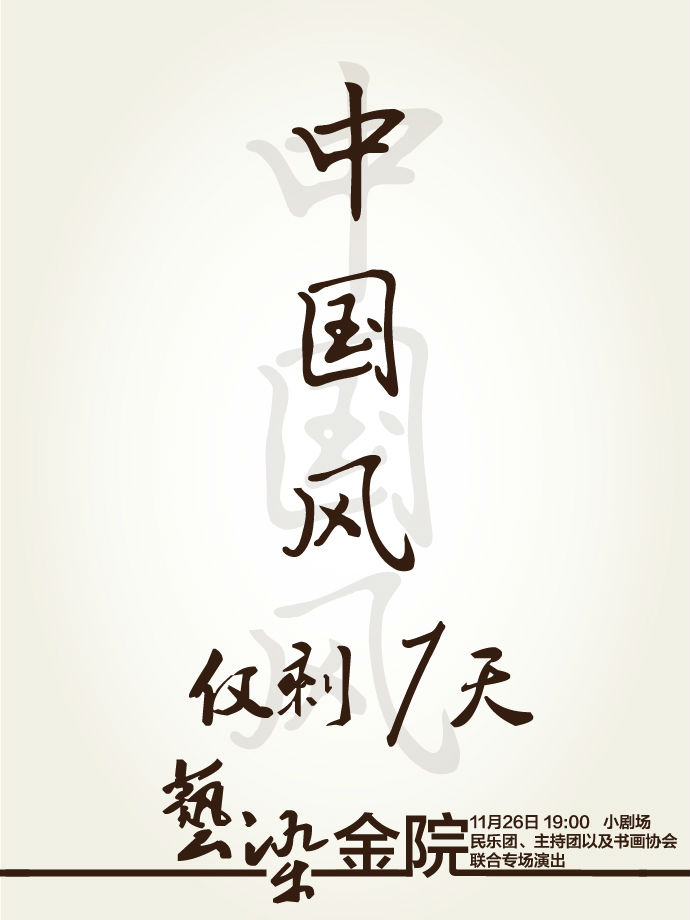 中国风
仅剩1天
藝染金院
11月26日 19:00 小剧场
民乐团、主持团以及书画协会
联合专场演出